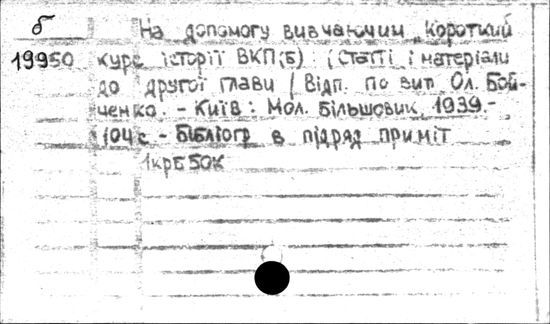 б
На допомогу вивчаючим "Короткий
19950 курс історії ВКП(б): (Статті і матеріали
до другої глави / Відп. по вип. Ол. Бой-
ченко. - Київ: Мол. більшовик, 1939. -
104 с - Бібліогр в підряд приміт
1крб50к